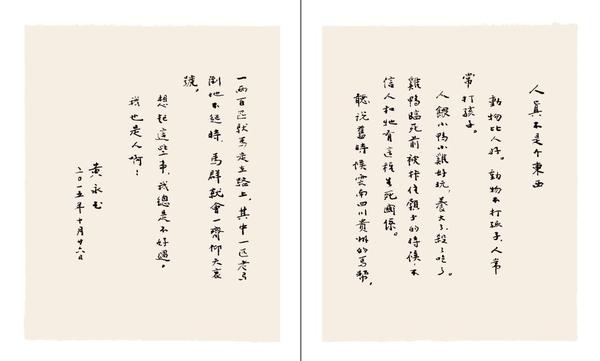 人真不是个東西
動物比人好。動物不打孩子,人常
常打孩子。
人餵小鴨小雞好玩,養大了,殺了吃了。
雞鴨臨死前被住頸子的時候,不
信人和牠有這種生死関係。
聽说舊時候雲南四川貴州的馬幫,
一兩百匹馱馬走在路上,其中一匹老馬
倒地不起時,馬群就會一齊仰天哀
號。
想起這些事,我總是不好過。
我也是人啊!
黄永玉
二〇一五年十月廿六日